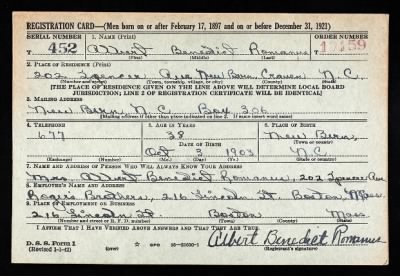 REGISTRATION CARD—(Men born on or after February 17, 1897 and on or before December 31, 1921)
SERIAL NUMBER 1. NAME (Print) ORDER NUMBER
T 452 Albert Benedict Romanus T 10159
(First) (Middle) (Last)
2. PLACE OF RESIDENCE (Print)
202 Spencer Ave New Bern, Craven N.C.
(Number and street) (Town, township, village, or city) (County) (State)
[THE PLACE OF RESIDENCE GIVEN ON THE LINE ABOVE WILL DETERMINE LOCAL BOARD
JURISDICTION; LINE 2 OF REGISTRATION CERTIFICATE WILL BE IDENTICAL]
3. MAILING ADDRESS
New Bern N.C. Box 306
(Mailing address if other than place indicated on line 2. If same insert word same)
4. TELEPHONE 5. AGE IN YEARS 6. PLACE OF BIRTH
677 38 New Bern,
DATE OF BIRTH (Town or county)
Oct 3 1903 N.C.
(Exchange) (Number) (Mo.) (Day) (Yr.) (State or country)
7. NAME AND ADDRESS OF PERSON WHO WILL ALWAYS KNOW YOUR ADDRESS
Mrs. Albert Benedict Romanus, 202 Spencer Ave
8. EMPLOYER'S NAME AND ADDRESS
Brothers, 216 Lincoln St. Boston, Mass
9. PLACE OF EMPLOYMENT OR BUSINESS
216 Lincoln St. Boston Mass.
(Number and street or R. F. D. number) (Town) (County) (State)
I AFFIRM THAT I HAVE VERIFIED ABOVE ANSWERS AND THAT THEY ARE TRUE.
D. S. S. Form 1 Albert Benedict Romanus
(Revised 1-1-42) (over) GPO 16—21630-1 (Registrant's signature)